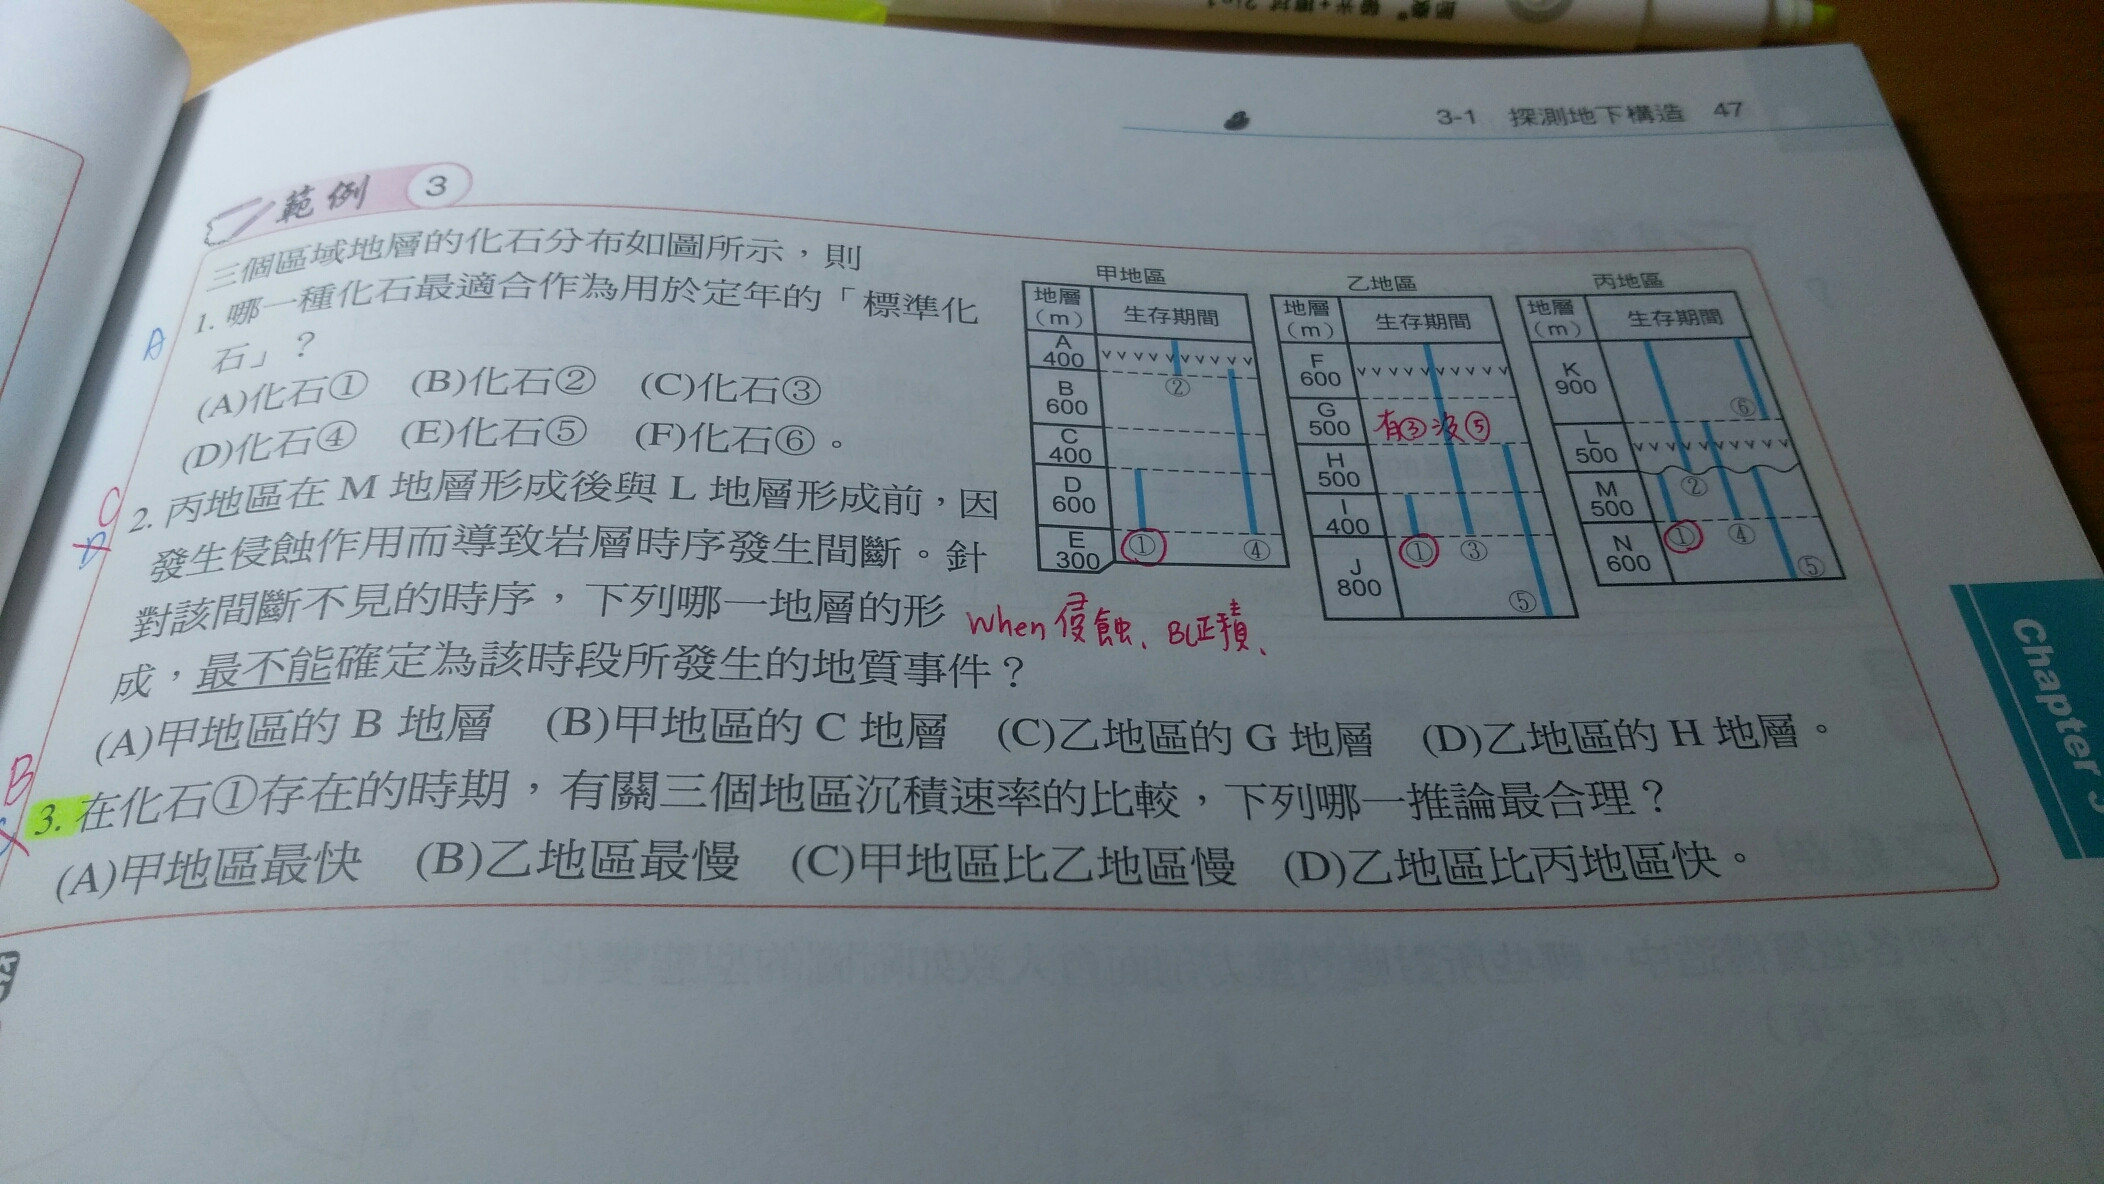 3-1 探測地下構造 47
範例 3
三個區域地層的化石分布如圖所示，則
1. 哪一種化石最適合作為用於定年的「標準化
石」？
(A)化石① (B)化石② (C)化石③
(D)化石④ (E)化石⑤ (F)化石⑥。
2. 丙地區在 M 地層形成後與 L 地層形成前，因
發生侵蝕作用而導致岩層時序發生間斷。針
對該間斷不見的時序，下列哪一地層的形
成，最不能確定為該時段所發生的地質事件？
(A)甲地區的 B 地層 (B)甲地區的 C 地層 (C)乙地區的 G 地層 (D)乙地區的 H 地層。
3. 在化石①存在的時期，有關三個地區沉積速率的比較，下列哪一推論最合理？
(A)甲地區最快 (B)乙地區最慢 (C)甲地區比乙地區慢 (D)乙地區比丙地區快。
A
C
D
B
甲地區
地層
(m)
生存期間
A
400
B
600
C
400
D
600
E
300
②
①
④
乙地區
地層
(m)
生存期間
F
600
G
500
H
500
I
400
J
800
有③沒⑤
①
③
⑤
丙地區
地層
(m)
生存期間
K
900
L
500
M
500
N
600
⑥
②
①
④
⑤
When 侵蝕、
Chapter